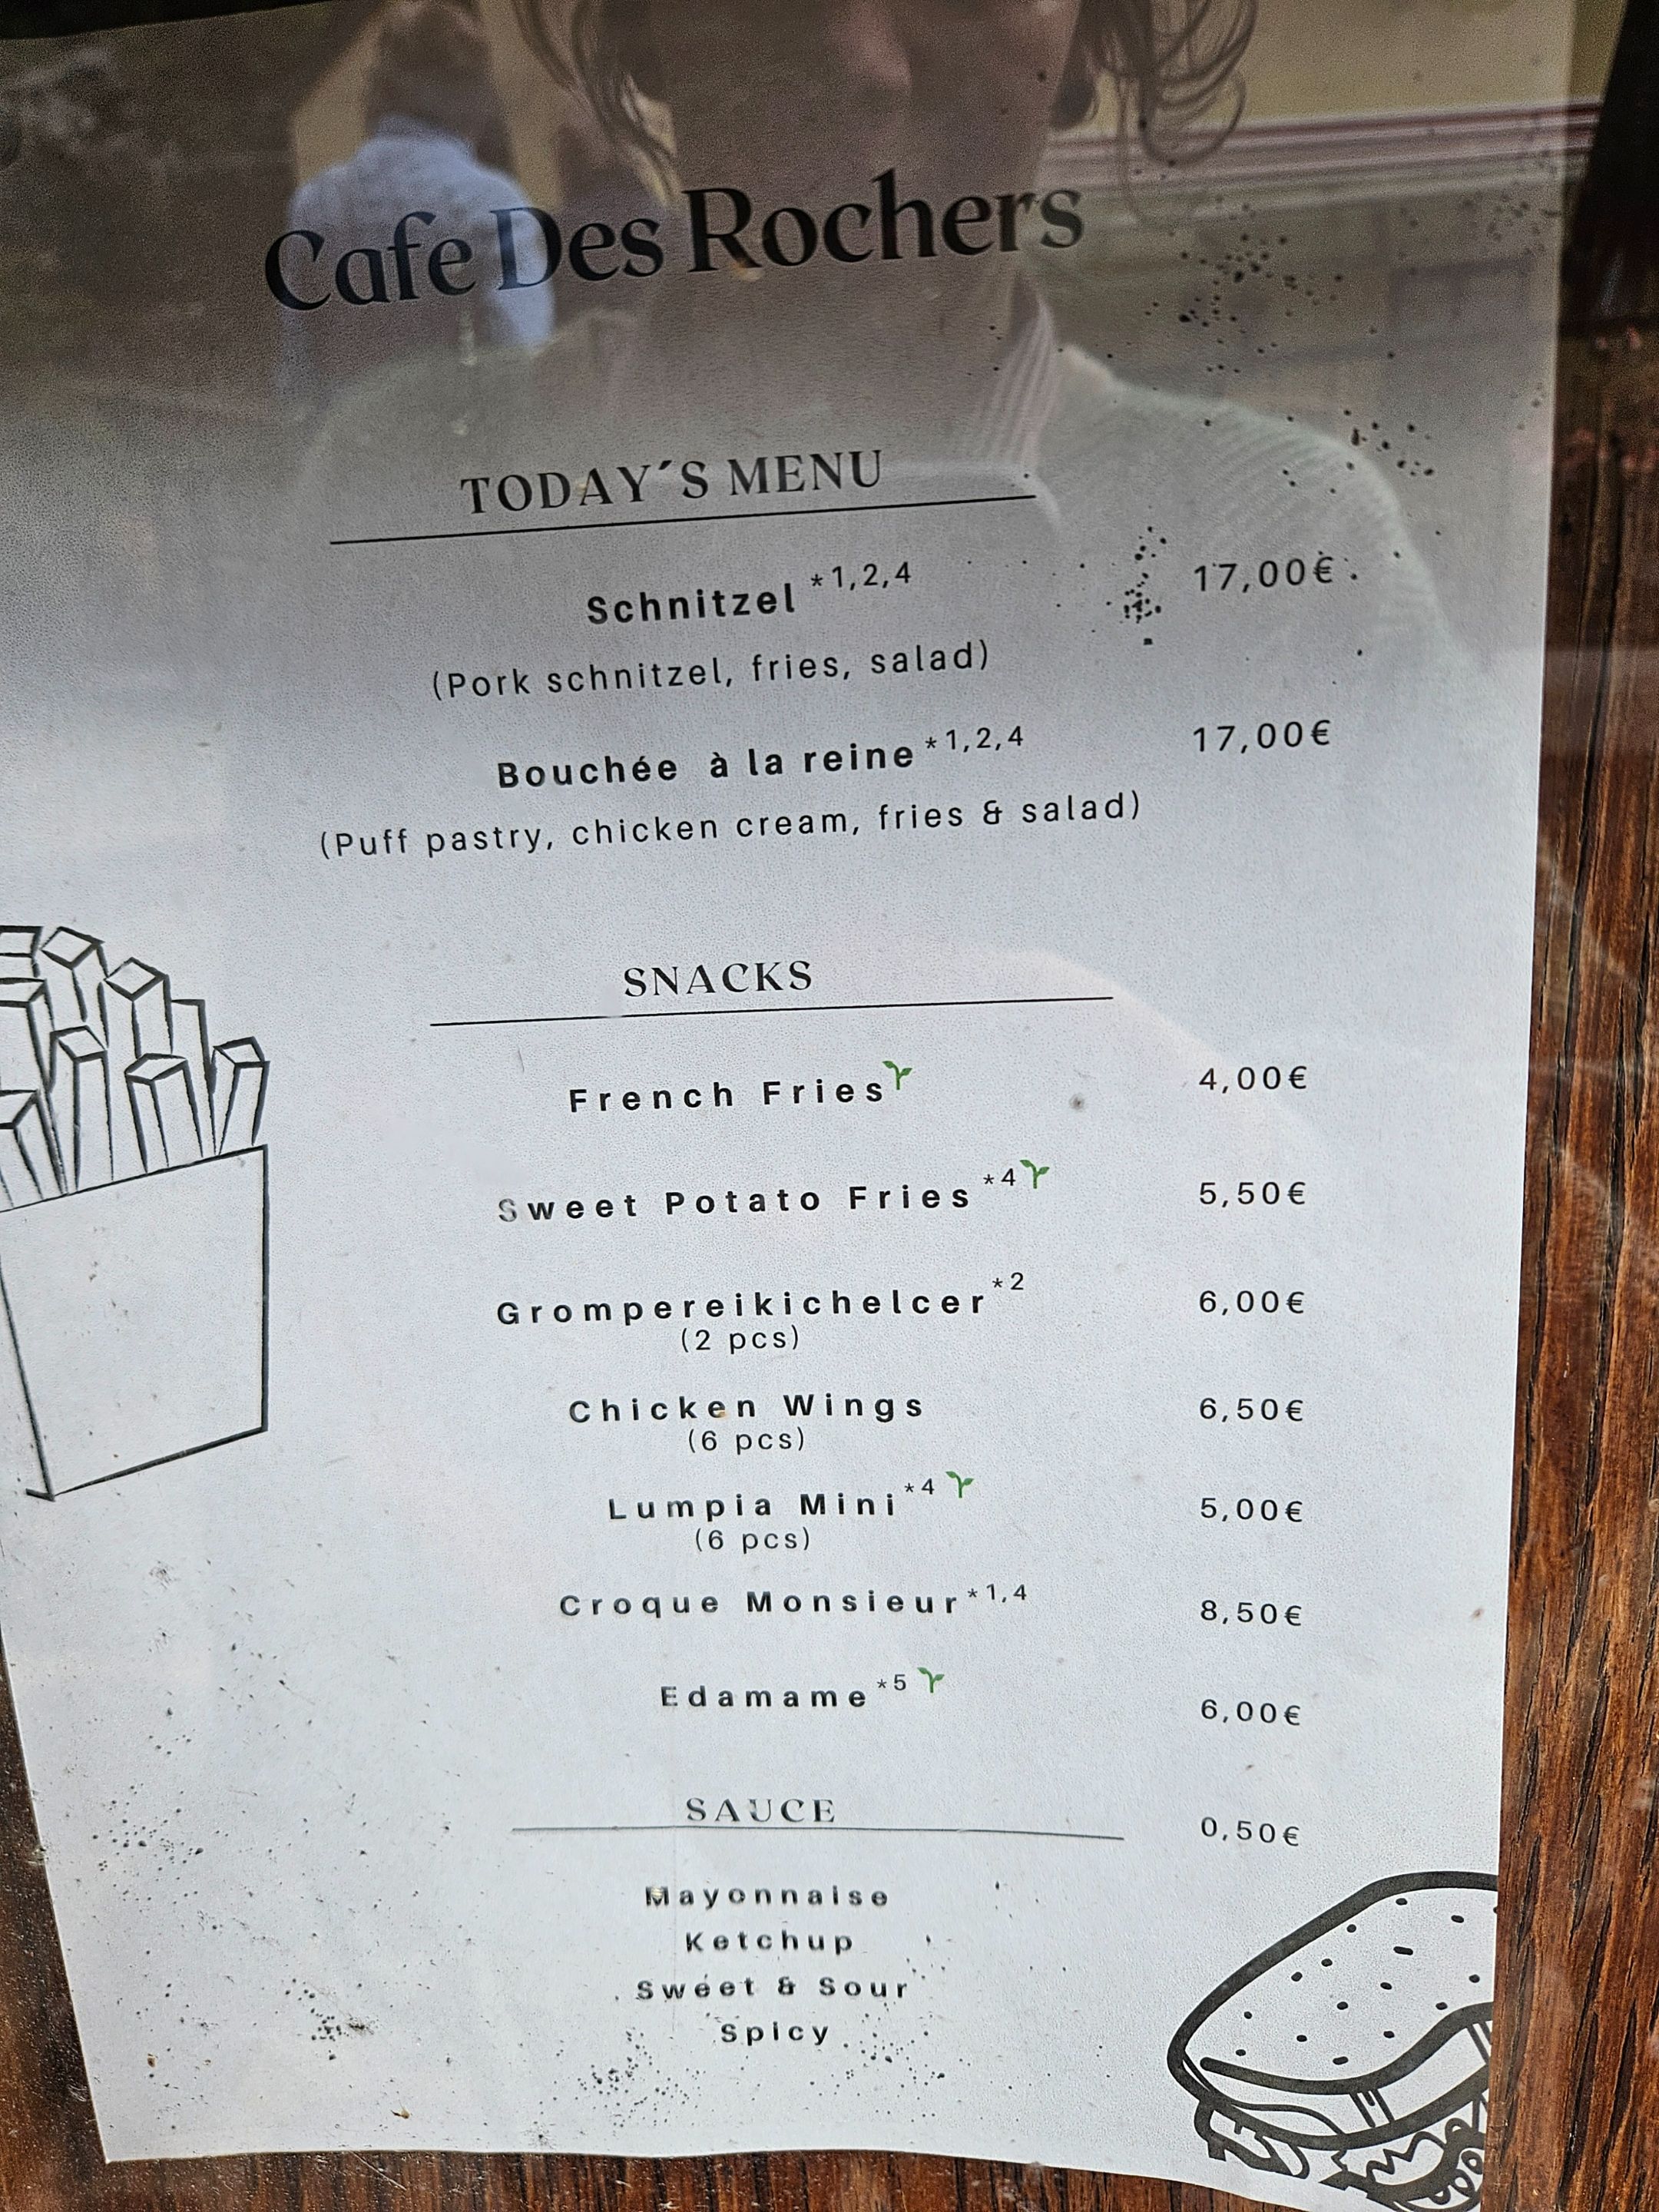 Cafe Des Rochers
TODAY´S MENU
Schnitzel *1,2,4 17,00€
(Pork schnitzel, fries, salad)
Bouchée à la reine *1,2,4 17,00€
(Puff pastry, chicken cream, fries & salad)
SNACKS
French Fries 4,00€
Sweet Potato Fries *4 5,50€
Grompereikichelcer *2 6,00€
(2 pcs)
Chicken Wings 6,50€
(6 pcs)
Lumpia Mini *4 5,00€
(6 pcs)
Croque Monsieur *1,4 8,50€
Edamame *5 6,00€
SAUCE 0,50€
Mayonnaise
Ketchup
Sweet & Sour
Spicy